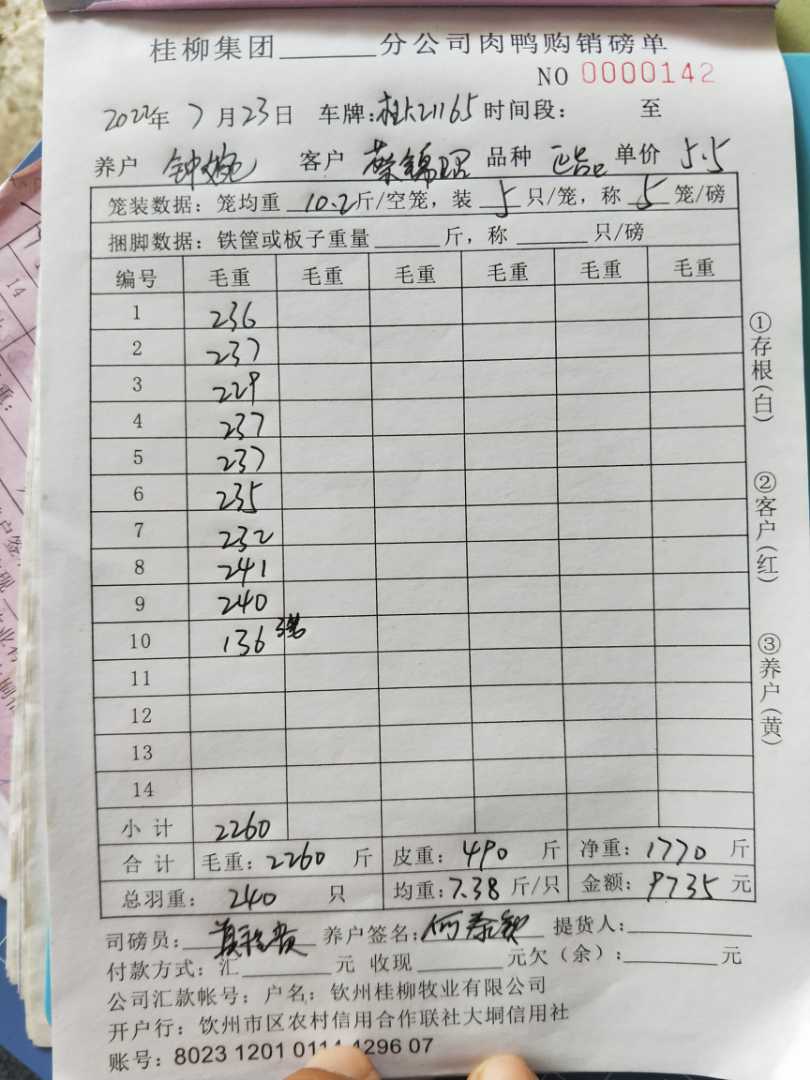 桂柳集团______分公司肉鸭购销磅单
NO 0000142
2022年 7月23日 车牌:桂21165 时间段: 至
养户 钟婉 客户 蔡锦昭 品种 正品 单价 5.5
笼装数据:笼均重 10.2斤/空笼,装 5 只/笼,称 5 笼/磅
捆脚数据:铁筐或板子重量______斤,称______只/磅
编号 毛重 毛重 毛重 毛重 毛重 毛重
1 236
2 237
3 229
4 237
5 237
6 235
7 232
8 241
9 240
10 136 3笼
11
12
13
14
小计 2260
合计 毛重:2260 斤 皮重:490 斤 净重:1770 斤
总羽重:240 只 均重:7.38 斤/只 金额:9735 元
司磅员: 养户签名: 提货人:______
付款方式:汇______元 收现______元欠(余):______元
公司汇款帐号:户名:钦州桂柳牧业有限公司
开户行:钦州市区农村信用合作联社大垌信用社
账号:8023 1201 0114 4296 07
①存根(白)
②客户(红)
③养户(黄)
14